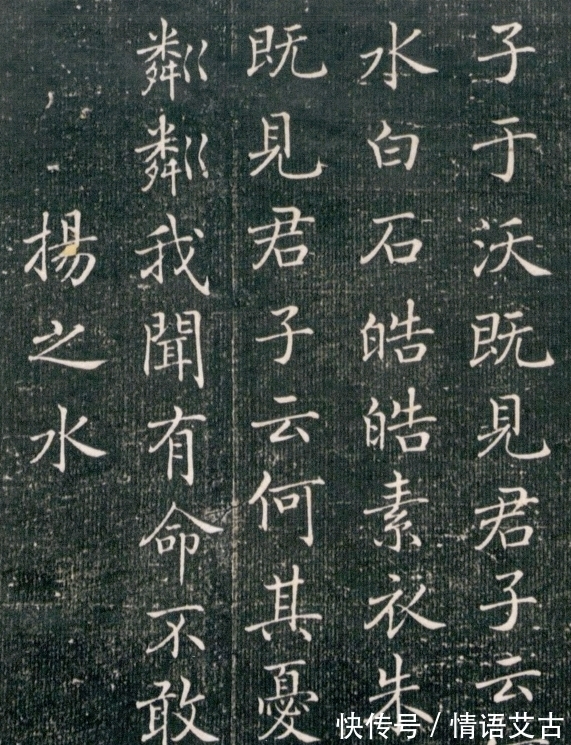 子于沃既見君子云
水白石皓皓素衣朱
既見君子云何其憂
粼粼我聞有命不敢
揚之水
快传号/情语艾古